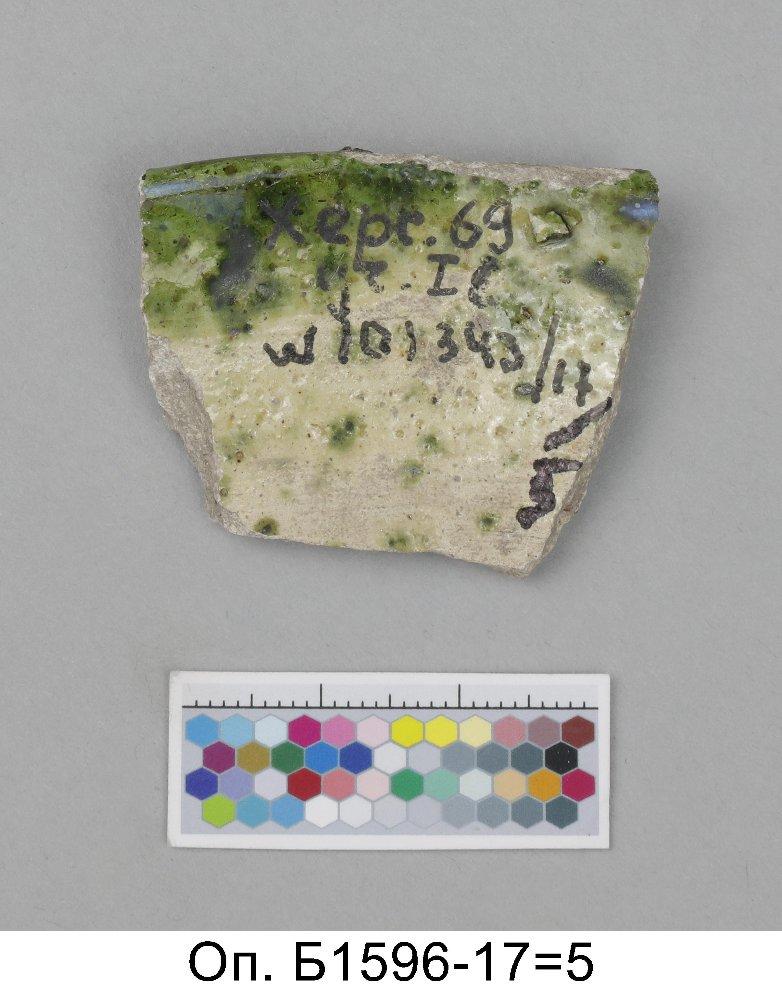 Херс. 69
уч. IC
№ 101343/17
Оп. Б1596-17=5